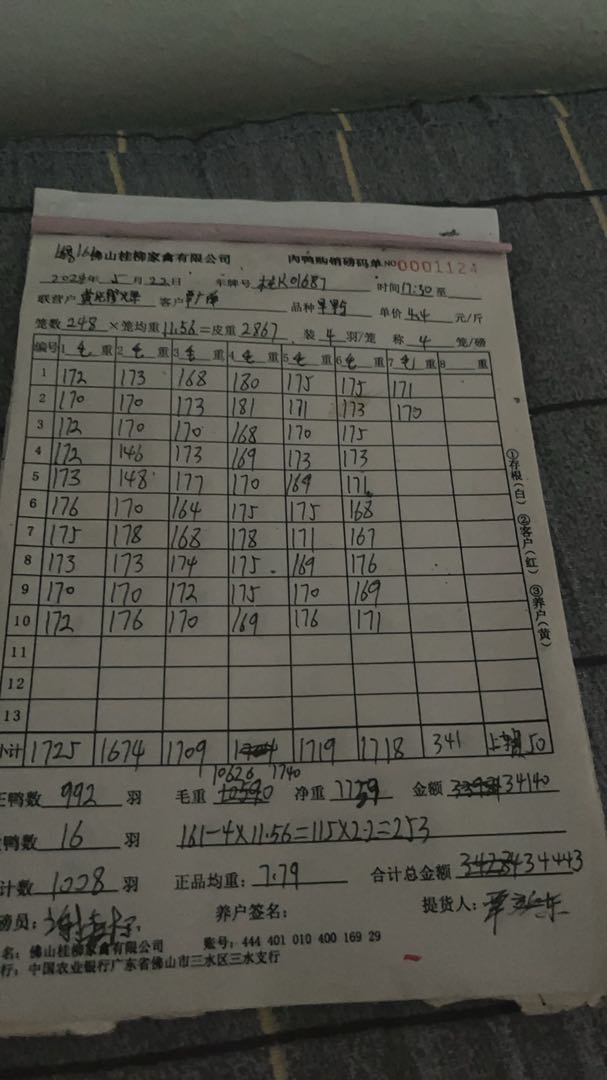 佛山桂柳家禽有限公司 肉鸭购销磅码单 NO 0001124
2024年 5 月 22 日 车牌号 桂K01687 时间 17:30 至
联营户 客户 品种 单价 4.4 元/斤
笼数 248 ×笼均重 11.56 =皮重 2867 装 4 羽/笼 称 4 笼/磅
编号 1 毛 重 2 毛 重 3 毛 重 4 毛 重 5 毛 重 6 毛 重 7 毛 重 8 重
1 172 173 168 180 175 175 171
2 170 170 173 181 171 173 170
3 172 170 170 168 170 175
4 172 146 173 169 173 173
5 173 148 177 170 169 171
6 176 170 164 175 175 168
7 175 178 168 178 171 167
8 173 173 174 175 169 176
9 170 170 172 175 170 169
10 172 176 170 169 176 171
11
12
13
小计 1725 1674 1709 1719 1718 341 50
10626 7740
鸭数 992 羽 毛重 净重 7759 金额 34140
鸭数 16 羽 161-4×11.56=115×2.2=253
计数 1028 羽 正品均重: 7.79 合计总金额 34443
磅员: 养户签名: 提货人:
名: 佛山桂柳家禽有限公司 账号: 444 401 010 400 169 29
行: 中国农业银行广东省佛山市三水区三水支行
①存根(白) ②客户(红) ③养户(黄)